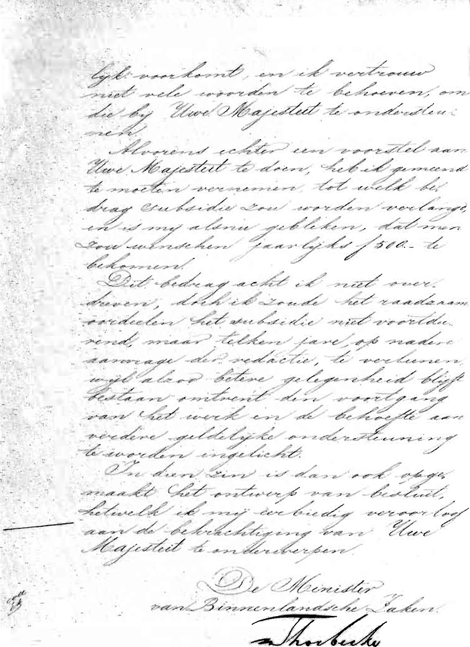 lijk voorkomt, en ik vertrouw
niet vele woorden te behoeven, om
die bij Uwe Majesteit te ondersteu-
nen.
Alvorens echter een voorstel aan
Uwe Majesteit te doen, heb ik gemeend
te moeten vernemen tot welk be-
drag subsidie zou worden verlangd,
en is mij alsnu gebleken, dat men
zou wenschen jaarlijks f 500.- te
bekomen.
Dit bedrag acht ik niet over-
dreven, doch ik zoude het raadzaam
oordeelen het subsidie niet voortdu-
rend, maar telken jare, op nadere
aanvrage der redactie, te verleenen,
wijl alzoo betere gelegenheid blijft
bestaan omtrent den voortgang
van het werk en de behoefte aan
verdere geldelijke ondersteuning
te worden ingelicht.
In dien zin is dan ook opge-
maakt het ontwerp van besluit,
hetwelk ik mij eerbiedig veroorloof
aan de bekrachtiging van Uwe
Majesteit te onderwerpen.
De Minister
van Binnenlandsche Zaken.
Thorbecke